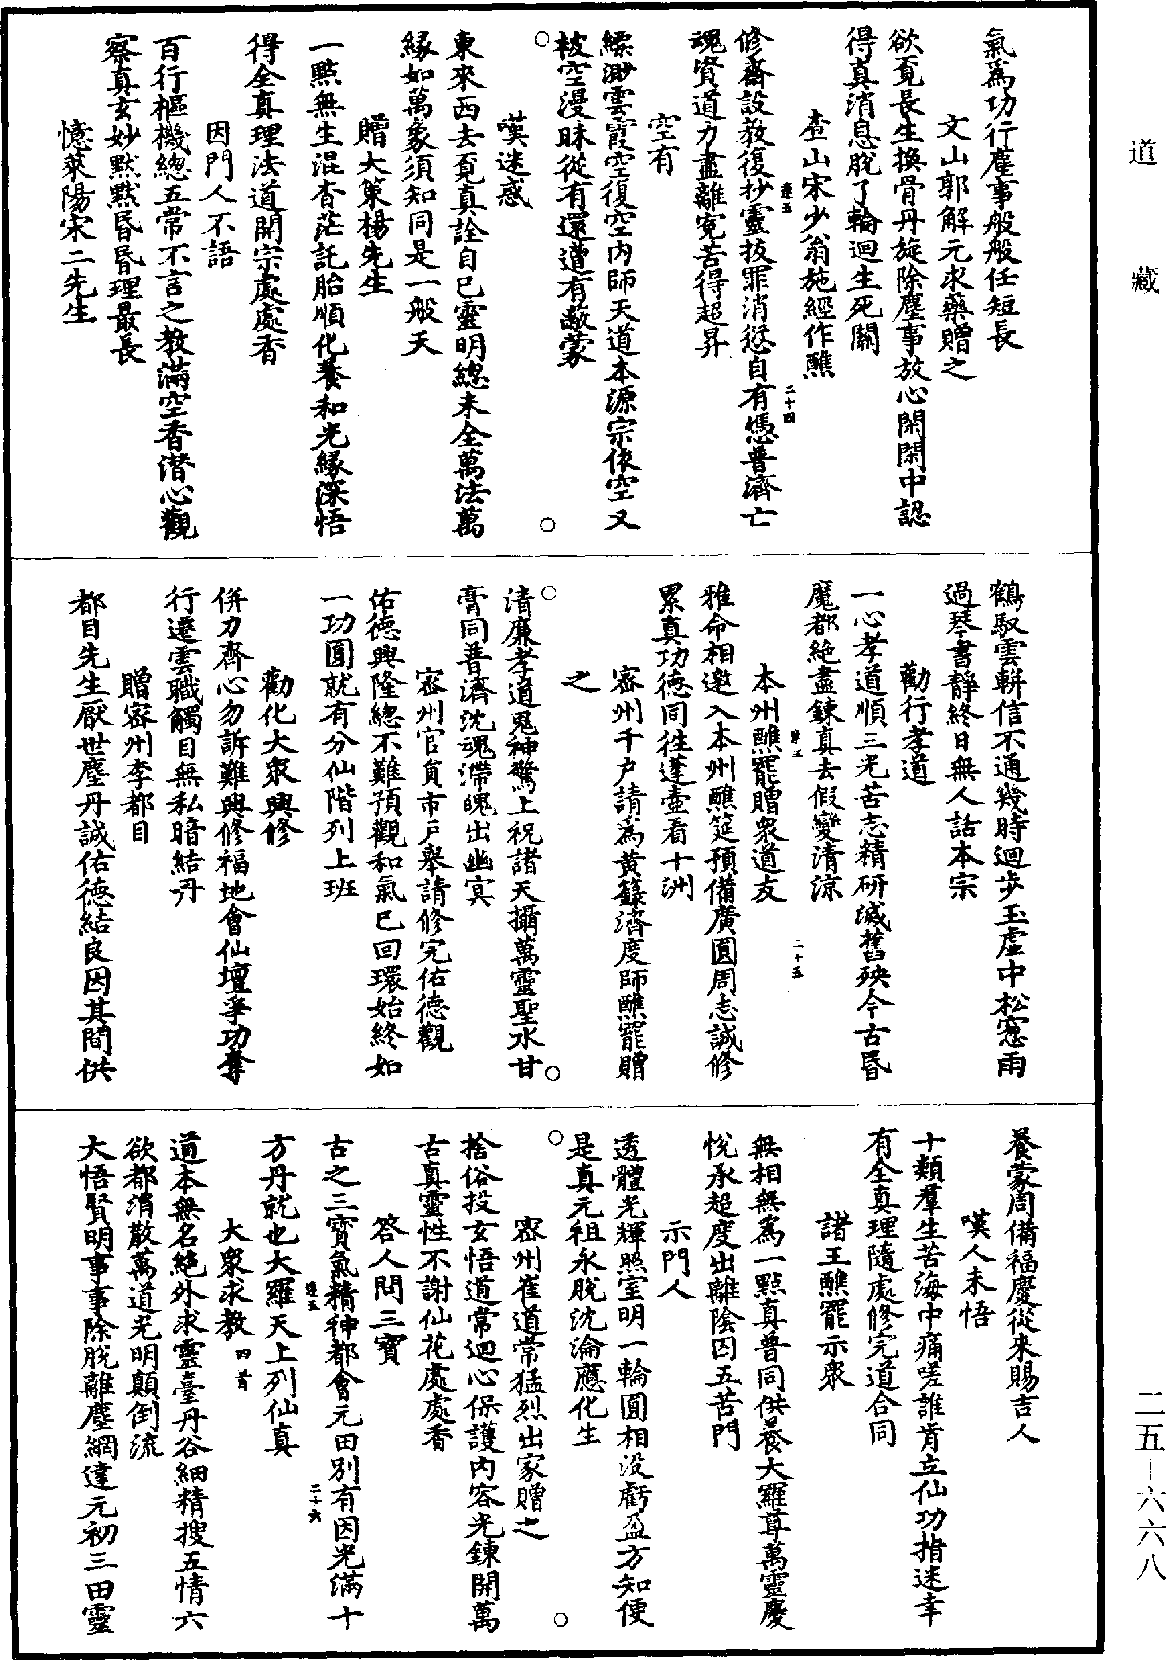 道藏
氣爲功行塵事般般任短長
文山郭解元求藥贈之
欲覓長生換骨丹旋除塵事放心閑閑中認
得真消息脫了輪迴生死關
查山宋少翁施經作醮
修齋設教復抄靈拔罪消愆自有憑普濟亡
魂資道力盡離寃苦得超昇
空有
縹渺雲霞空復空内師天道本源宗依空又
被空漫昧從有還遭有敵蒙
嘆迷惑
東來西去覓真詮自已靈明總未全萬法萬
緣如萬象須知同是一般天
贈大策楊先生
一點無生混杳茫託胎順化養和光緣深悟
得全真理法道開宗處處香
因門人不語
百行樞機總五常不言之教滿空香潛心觀
察真玄妙默默昏昏理最長
憶萊陽宋二先生
二十四
鶴馭雲輧信不通幾時迴步玉虛中松窻雨
過琴書靜終日無人話本宗
勸行孝道
一心孝道順三光苦志精研滅舊殃今古昏
魔都絕盡鍊真去假變清涼
本州醮罷贈衆道友
雅命相邀入本州醮筵預備廣圓周志誠修
累真功德同徃蓬壺看十洲
密州千户請爲黄籙濟度師醮罷贈
之
清廉孝道鬼神驚上祝諸天攝萬靈聖水甘
膏同普濟沈魂滯魄出幽㝠
密州官員市戶舉請修完佑德觀
佑德興隆總不難預觀和氣已回環始終如
一功圓就有分仙階列上班
勸化大衆興修
併力齊心勿訴難興修福地會仙壇爭功奪
行遷雲職觸目無私暗結丹
贈密州李都目
都目先生厭世塵丹誠佑德結良因其間供
二十五
養蒙周備福慶從來賜吉人
嘆人未悟
十類羣生苦海中痛嗟誰肯立仙功指迷幸
有全真理隨處修完道合同
諸王醮罷示衆
無相無爲一點真普同供養大羅尊萬靈慶
悅承超度出離陰囚五苦門
示門人
透體光輝照室明一輪圓相没虧盈方知便
是真元祖永脫沈淪應化生
密州崔道常猛烈出家贈之
捨俗投玄悟道常迴心保護内容光鍊開萬
古真靈性不謝仙花處處香
答人問三寶
古之三寶氣精神都會元田別有因光滿十
方丹就也大羅天上列仙真
大衆求教四首
道本無名絶外求靈臺丹谷細精搜五情六
欲都消散萬道光明顛倒流
大悟賢明事事除脫離塵網達元初三田靈
二十六
二五—六六八